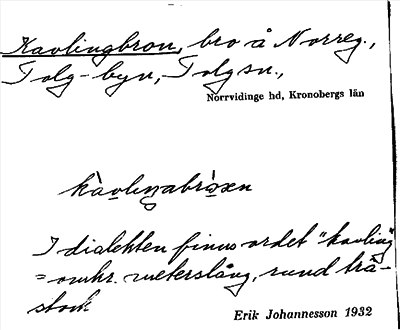 Kavlingbron, bro å Norreg.,
Tolg-byn, Tolg sn.,
Norrvidinge hd, Kronobergs län
I dialekten finns ordet "kavling"
= omkr. meterslång, rund trä-
stock
Erik Johannesson 1932